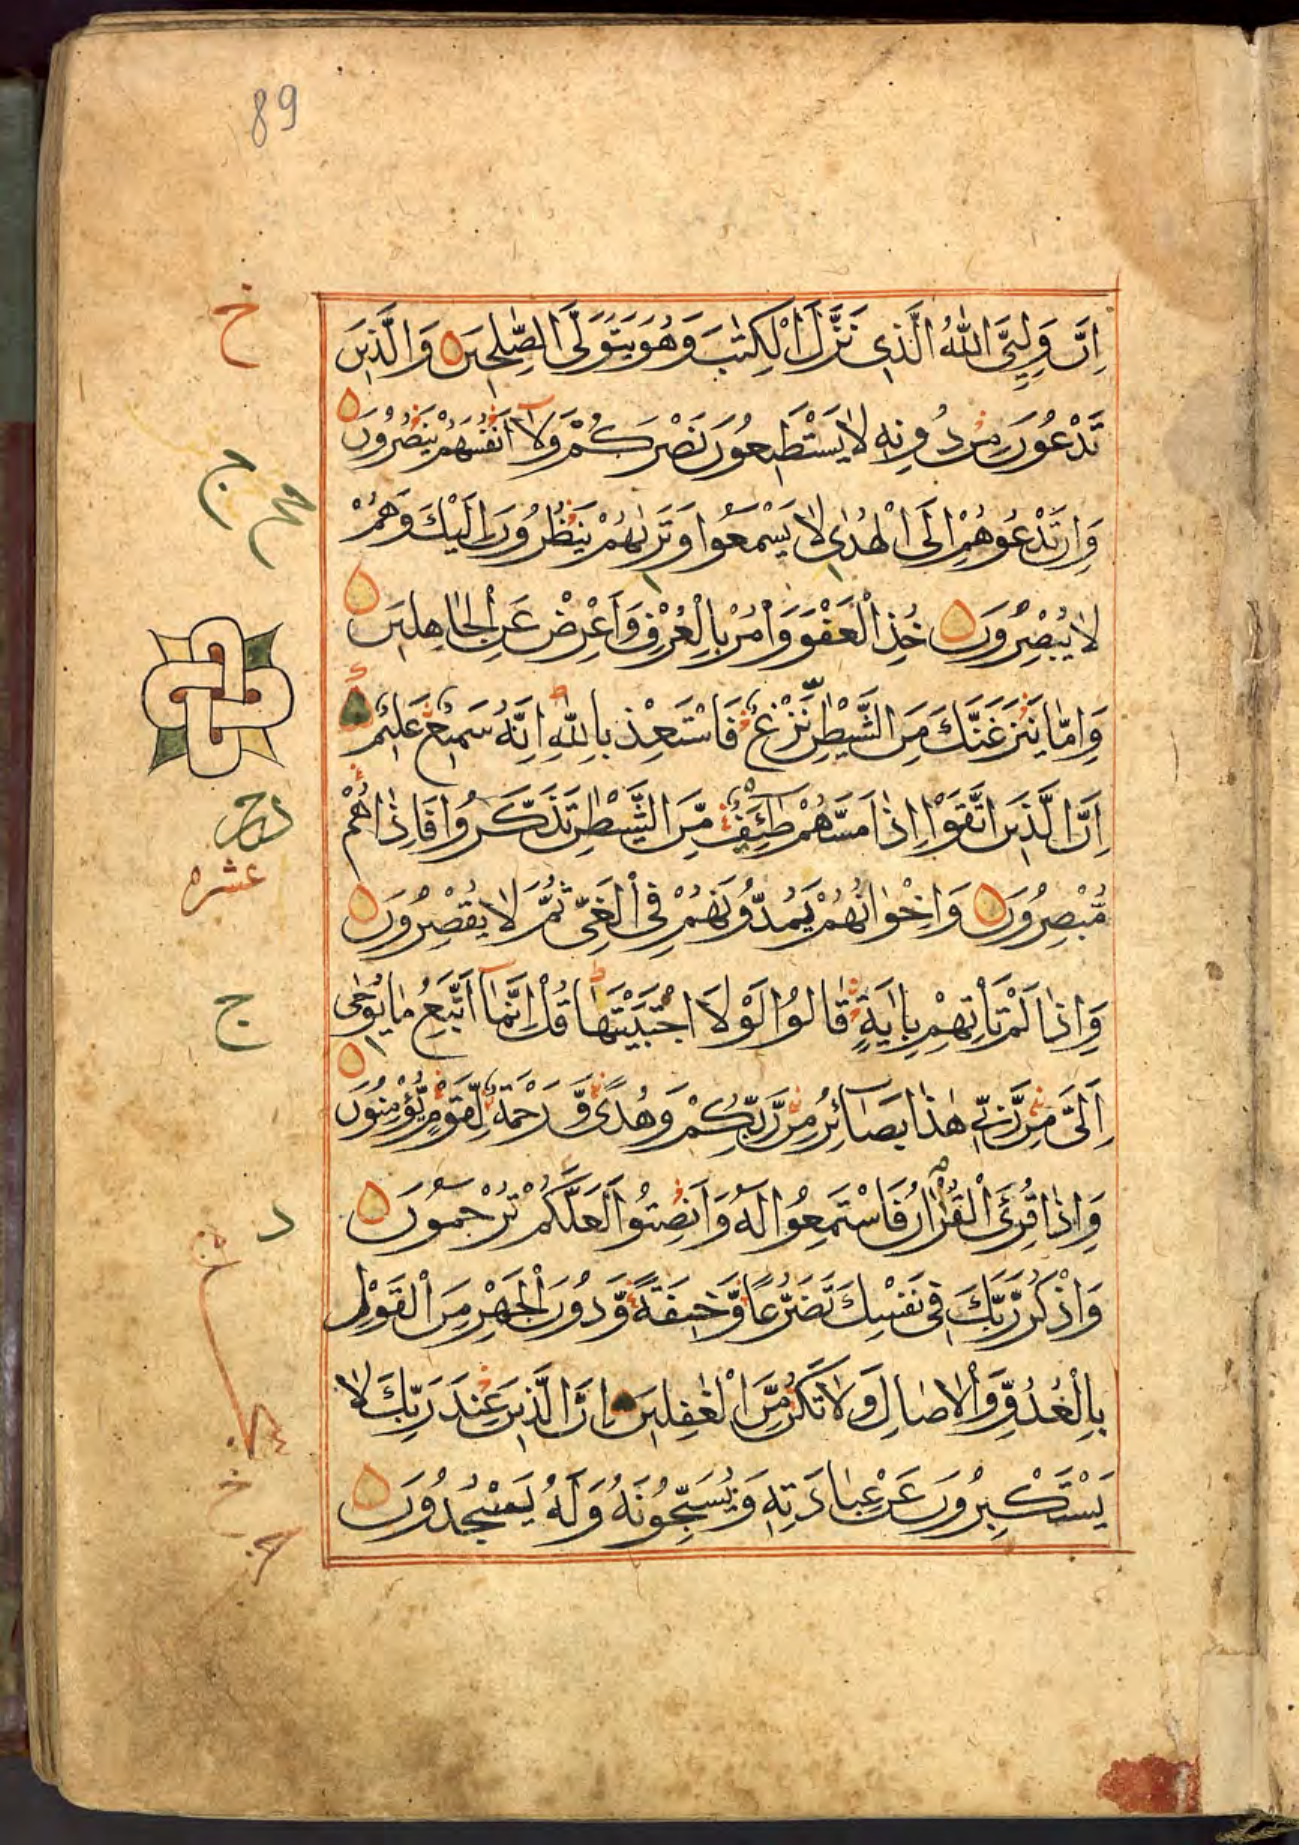 89
اِنَّ وَلِيِّيَ اللّٰهُ الَّذِي نَزَّلَ الْكِتٰبَ وَهُوَ يَتَوَلَّى الصّٰلِحِينَ وَالَّذِينَ
تَدْعُونَ مِنْ دُونِهِ لَا يَسْتَطِيعُونَ نَصْرَكُمْ وَلَا اَنْفُسَهُمْ يَنْصُرُونَ
وَاِنْ تَدْعُوهُمْ اِلَى الْهُدٰى لَا يَسْمَعُوا وَتَرٰىهُمْ يَنْظُرُونَ اِلَيْكَ وَهُمْ
لَا يُبْصِرُونَ خُذِ الْعَفْوَ وَاْمُرْ بِالْعُرْفِ وَاَعْرِضْ عَنِ الْجَاهِلِينَ
وَاِمَّا يَنْزَغَنَّكَ مِنَ الشَّيْطٰنِ نَزْغٌ فَاسْتَعِذْ بِاللّٰهِ اِنَّهُ سَمِيعٌ عَلِيمٌ
اِنَّ الَّذِينَ اتَّقَوْا اِذَا مَسَّهُمْ طٰٓئِفٌ مِّنَ الشَّيْطٰنِ تَذَكَّرُوا فَاِذَا هُمْ
مُّبْصِرُونَ وَاِخْوَانُهُمْ يَمُدُّونَهُمْ فِي الْغَيِّ ثُمَّ لَا يُقْصِرُونَ
عشره
وَاِذَا لَمْ تَاْتِهِمْ بِاٰيَةٍ قَالُوا لَوْلَا اجْتَبَيْتَهَا قُلْ اِنَّمَا اَتَّبِعُ مَا يُوحٰى
اِلَيَّ مِنْ رَّبِّي هٰذَا بَصَائِرُ مِنْ رَّبِّكُمْ وَهُدًى وَّرَحْمَةٌ لِّقَوْمٍ يُّؤْمِنُونَ
وَاِذَا قُرِئَ الْقُرْاٰنُ فَاسْتَمِعُوا لَهُ وَاَنْصِتُوا لَعَلَّكُمْ تُرْحَمُونَ
وَاذْكُرْ رَّبَّكَ فِي نَفْسِكَ تَضَرُّعًا وَّخِيفَةً وَّدُونَ الْجَهْرِ مِنَ الْقَوْلِ
بِالْغُدُوِّ وَالْاٰصَالِ وَلَا تَكُنْ مِّنَ الْغٰفِلِينَ اِنَّ الَّذِينَ عِنْدَ رَبِّكَ لَا
يَسْتَكْبِرُونَ عَنْ عِبَادَتِهِ وَيُسَبِّحُونَهُ وَلَهُ يَسْجُدُونَ